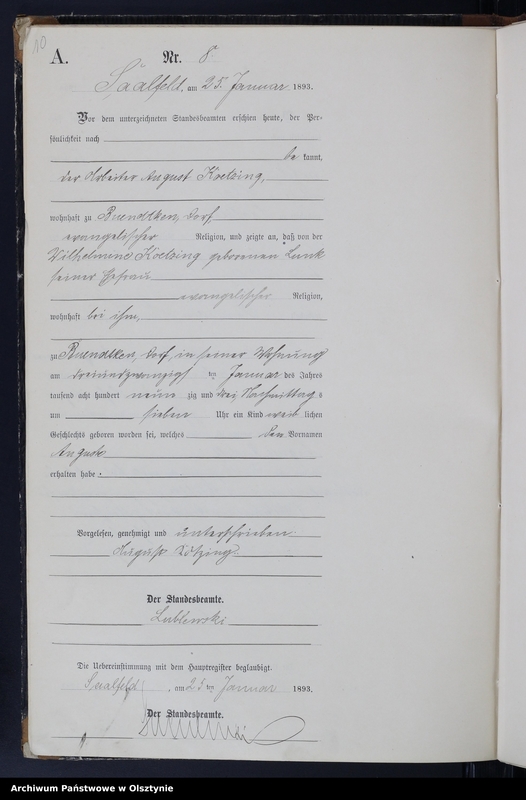 10
A. Nr. 8
Saalfeld, am 25. Januar 1893.
Vor dem unterzeichneten Standesbeamten erschien heute, der Per-
sönlichkeit nach
be kannt,
der Arbeiter August Koetzing,
wohnhaft zu Buendtken, Dorf
evangelischer Religion, und zeigte an, daß von der
Wilhelmine Koetzing geborenen Lunk
seiner Ehefrau
evangelischer Religion,
wohnhaft bei ihm,
zu Buendtken, Dorf, in seiner Wohnung
am dreiundzwanzigsten ten Januar des Jahres
tausend acht hundert neun zig und drei Nachmittags
um sieben Uhr ein Kind weib lichen
Geschlechts geboren worden sei, welches den Vornamen
Auguste
erhalten habe.
Vorgelesen, genehmigt und unterschrieben
August Kötzing
Der Standesbeamte.
Die Uebereinstimmung mit dem Hauptregister beglaubigt.
Saalfeld, am 25 ten Januar 1893.
Der Standesbeamte.
Archiwum Państwowe w Olsztynie